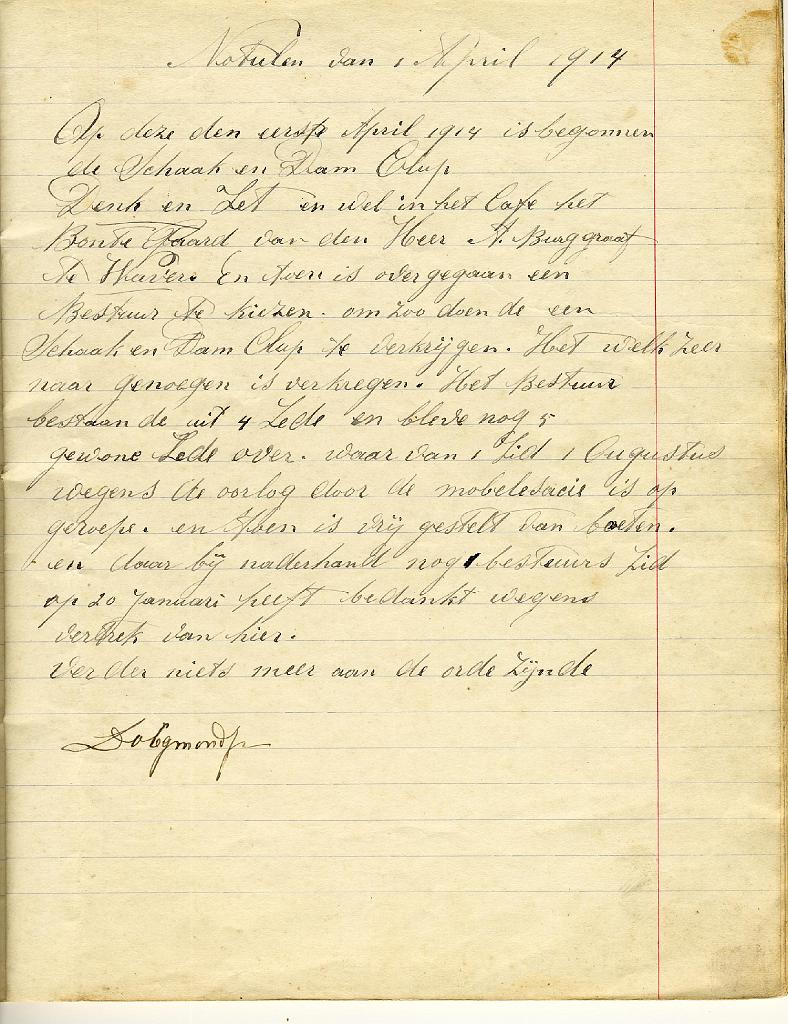 Notulen van 1 April 1914
Op deze den eerste April 1914 is begonnen
de Schaak en Dam Clup
Denk en Zet en wel in het Cafe het
Bonte Paard van den Heer A. Burggraaf
te Wavere En toen is over gegaan een
Bestuur te kiezen. om zoo doen de een
Schaak en Dam Clup te verkrijgen. Het welk zeer
naar genoegen is verkregen. Het Bestuur
bestaan de uit 4 Lede en bleve nog 5
gewone Lede over. waar van 1 Lid 1 Augustus
wegens de oorlog door de mobelesacie is op
geroepe. en toen is vrij gestelt van boeten.
en daar bij naderhand nog 1 bestuurs Lid
op 20 Januari heeft bedankt wegens
vertrek van hier.
Verder niets meer aan de orde zijnde